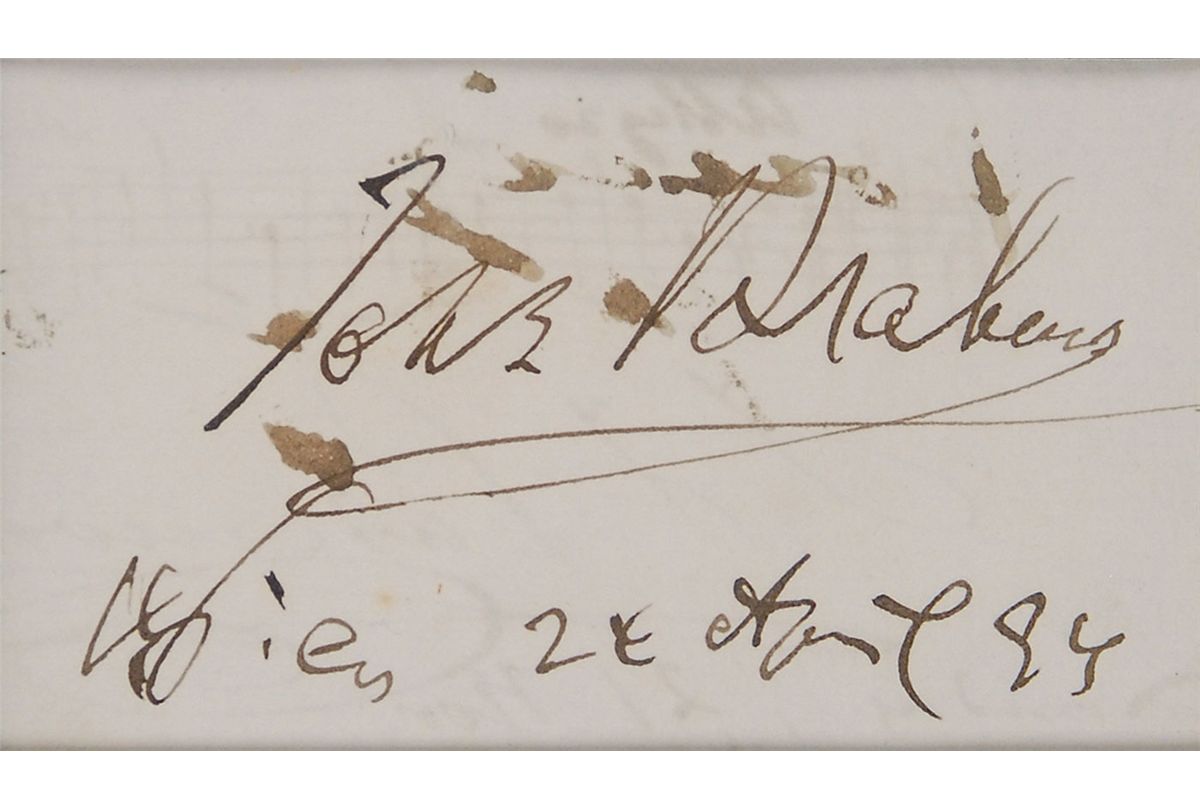 Johs Brahms
Wien 24 April